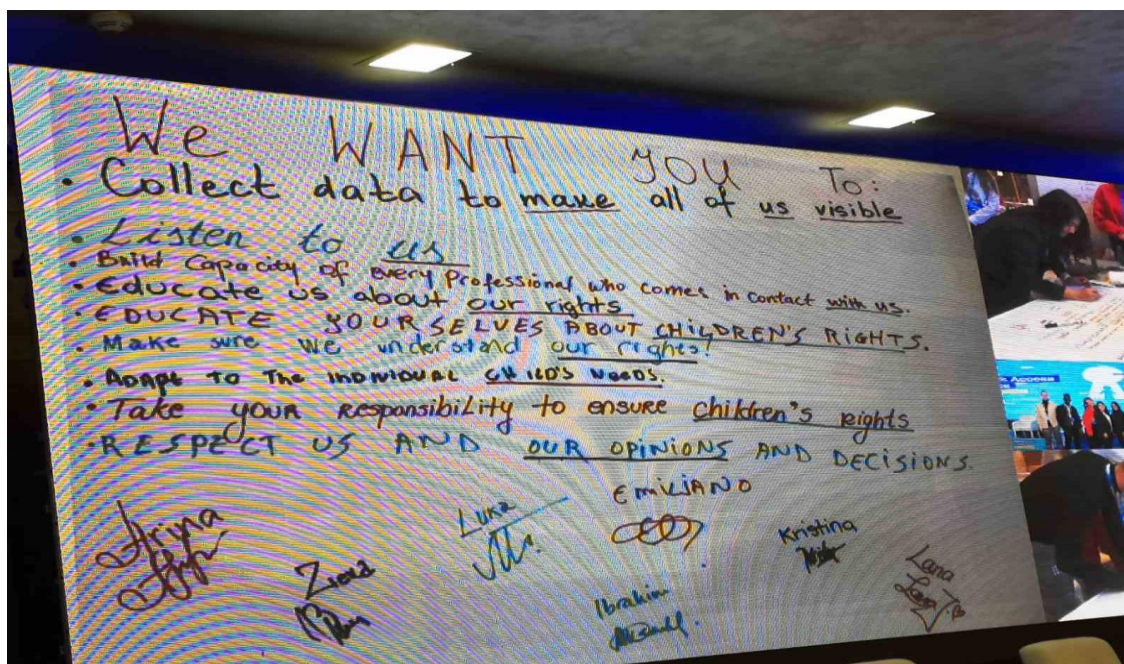 We WANT YOU To:
• Collect data to make all of us visible
• Listen to us
• Build Capacity of every Professional who comes in contact with us.
• Educate us about our rights
• EDUCATE YOURSELVES ABOUT CHILDREN'S RIGHTS.
• Make sure we understand our rights!
• ADAPT To The INDIVIDUAL CHILD'S NEEDS.
• Take your Responsibility to ensure children's rights
• RESPECT US AND OUR OPINIONS AND DECISIONS.
EMILJANO
Luka
Kristina
Arina
Lana
Ibrahim
Access